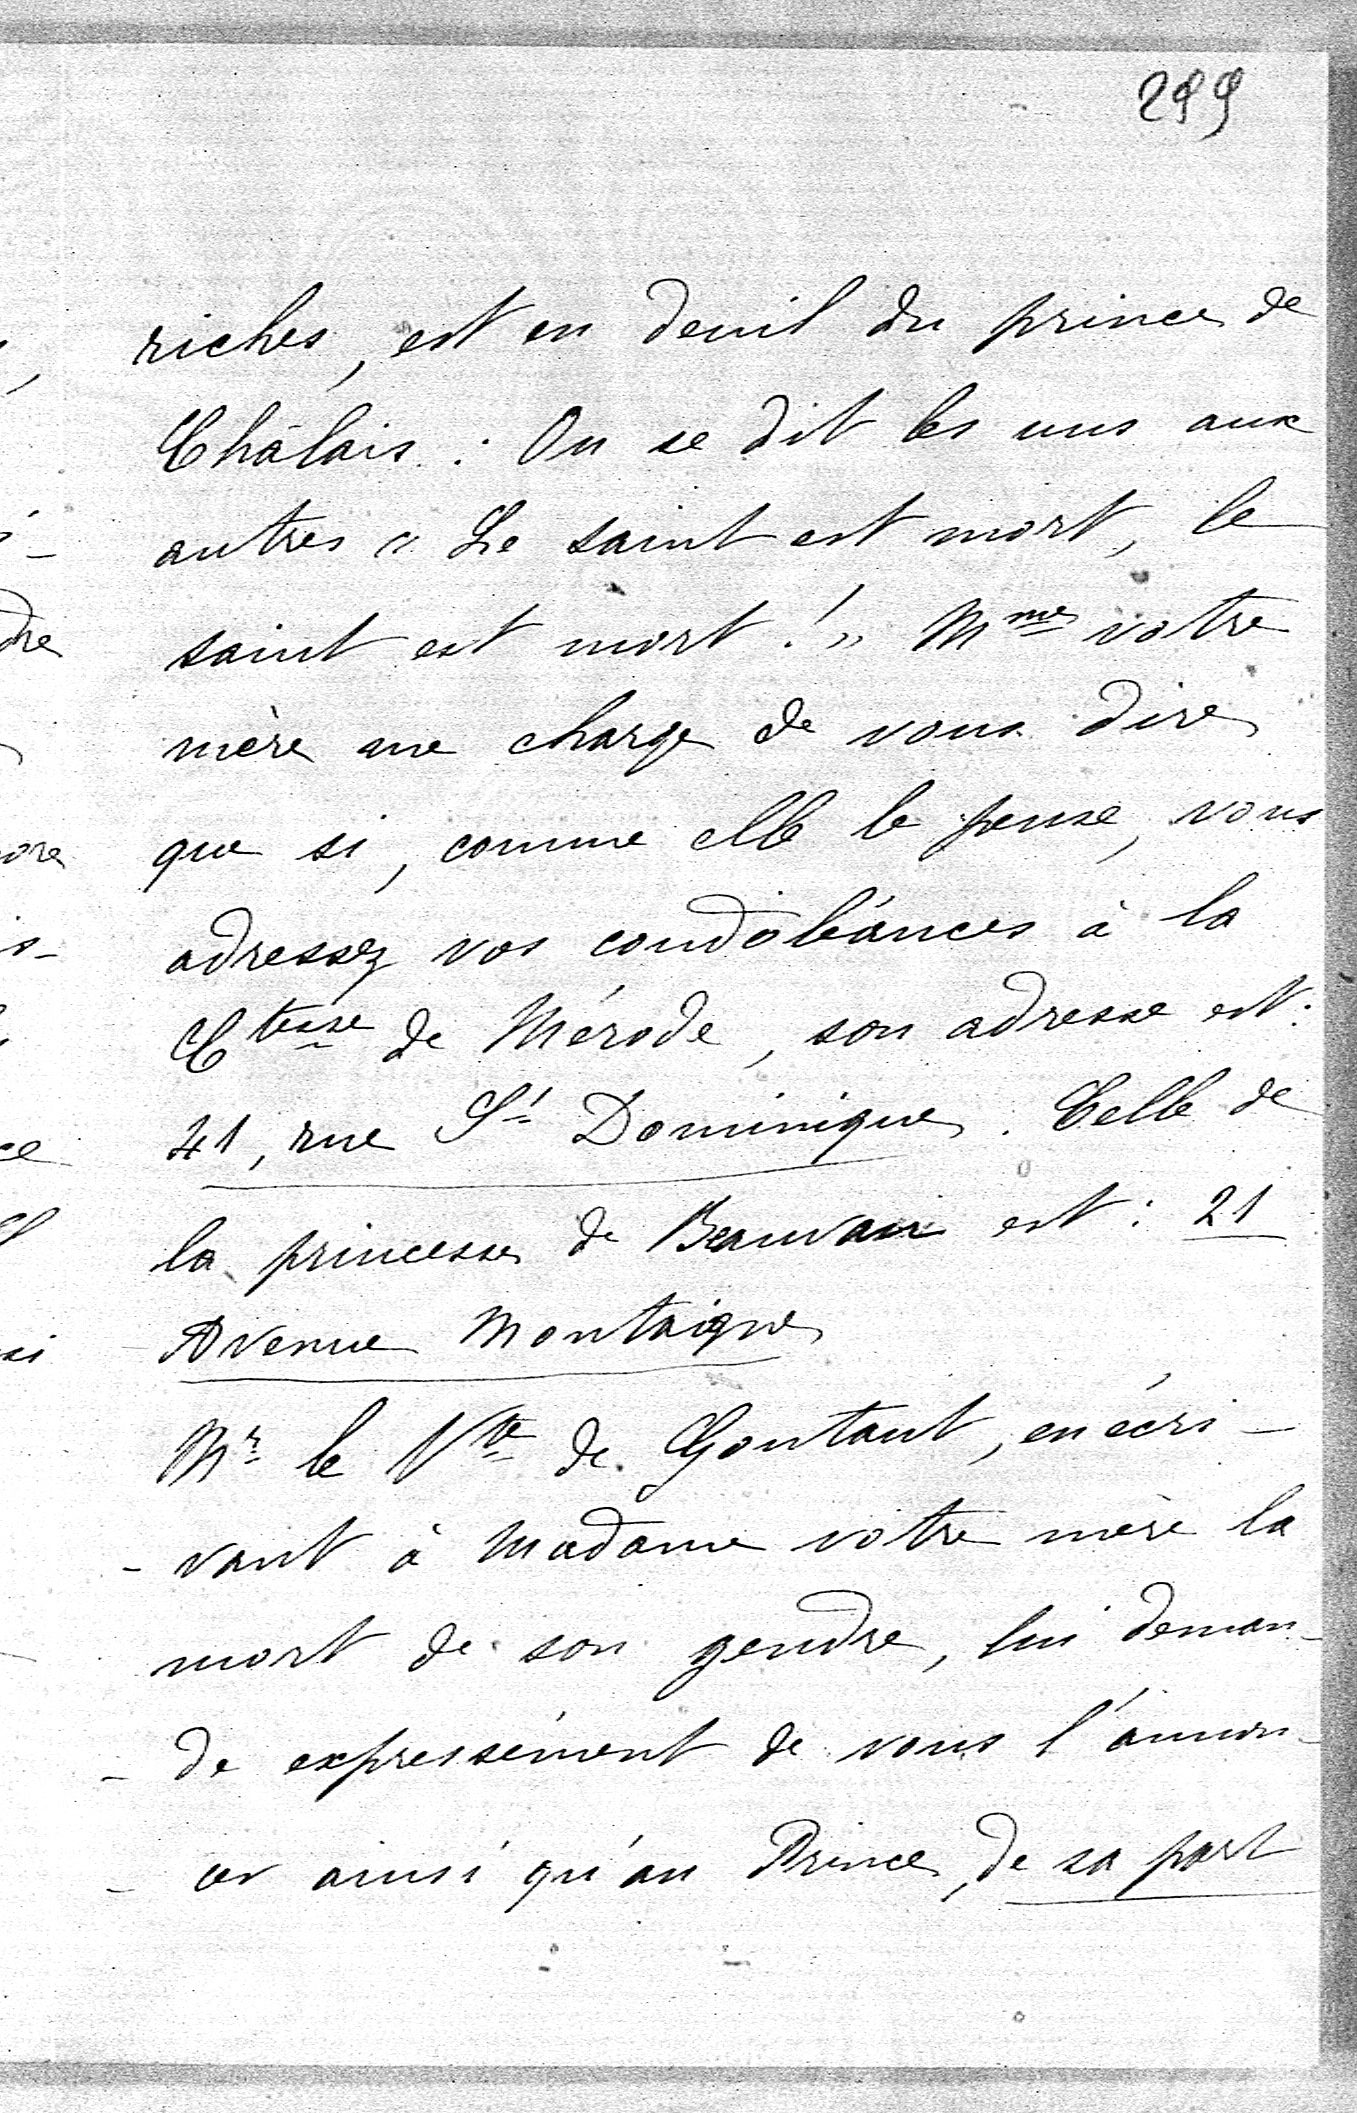 299
riches, est en deuil du prince de
Châlais : On se dit les uns aux
autres « Le saint est mort, le
saint est mort ! » Mme votre
mère me charge de vous dire
que si, comme elle le pense, vous
adressez vos condoléances à la
Ctesse de Mérode, son adresse est :
41, rue St Dominique. Celle de
la princesse de Beauvau est : 21
Avenue Montaigne
Mr le Vte de Gontaut, en écri-
- vant à Madame votre mère la
mort de son gendre, lui deman-
- de expressément de vous l'annon-
- cer ainsi qu'au Prince, de sa part